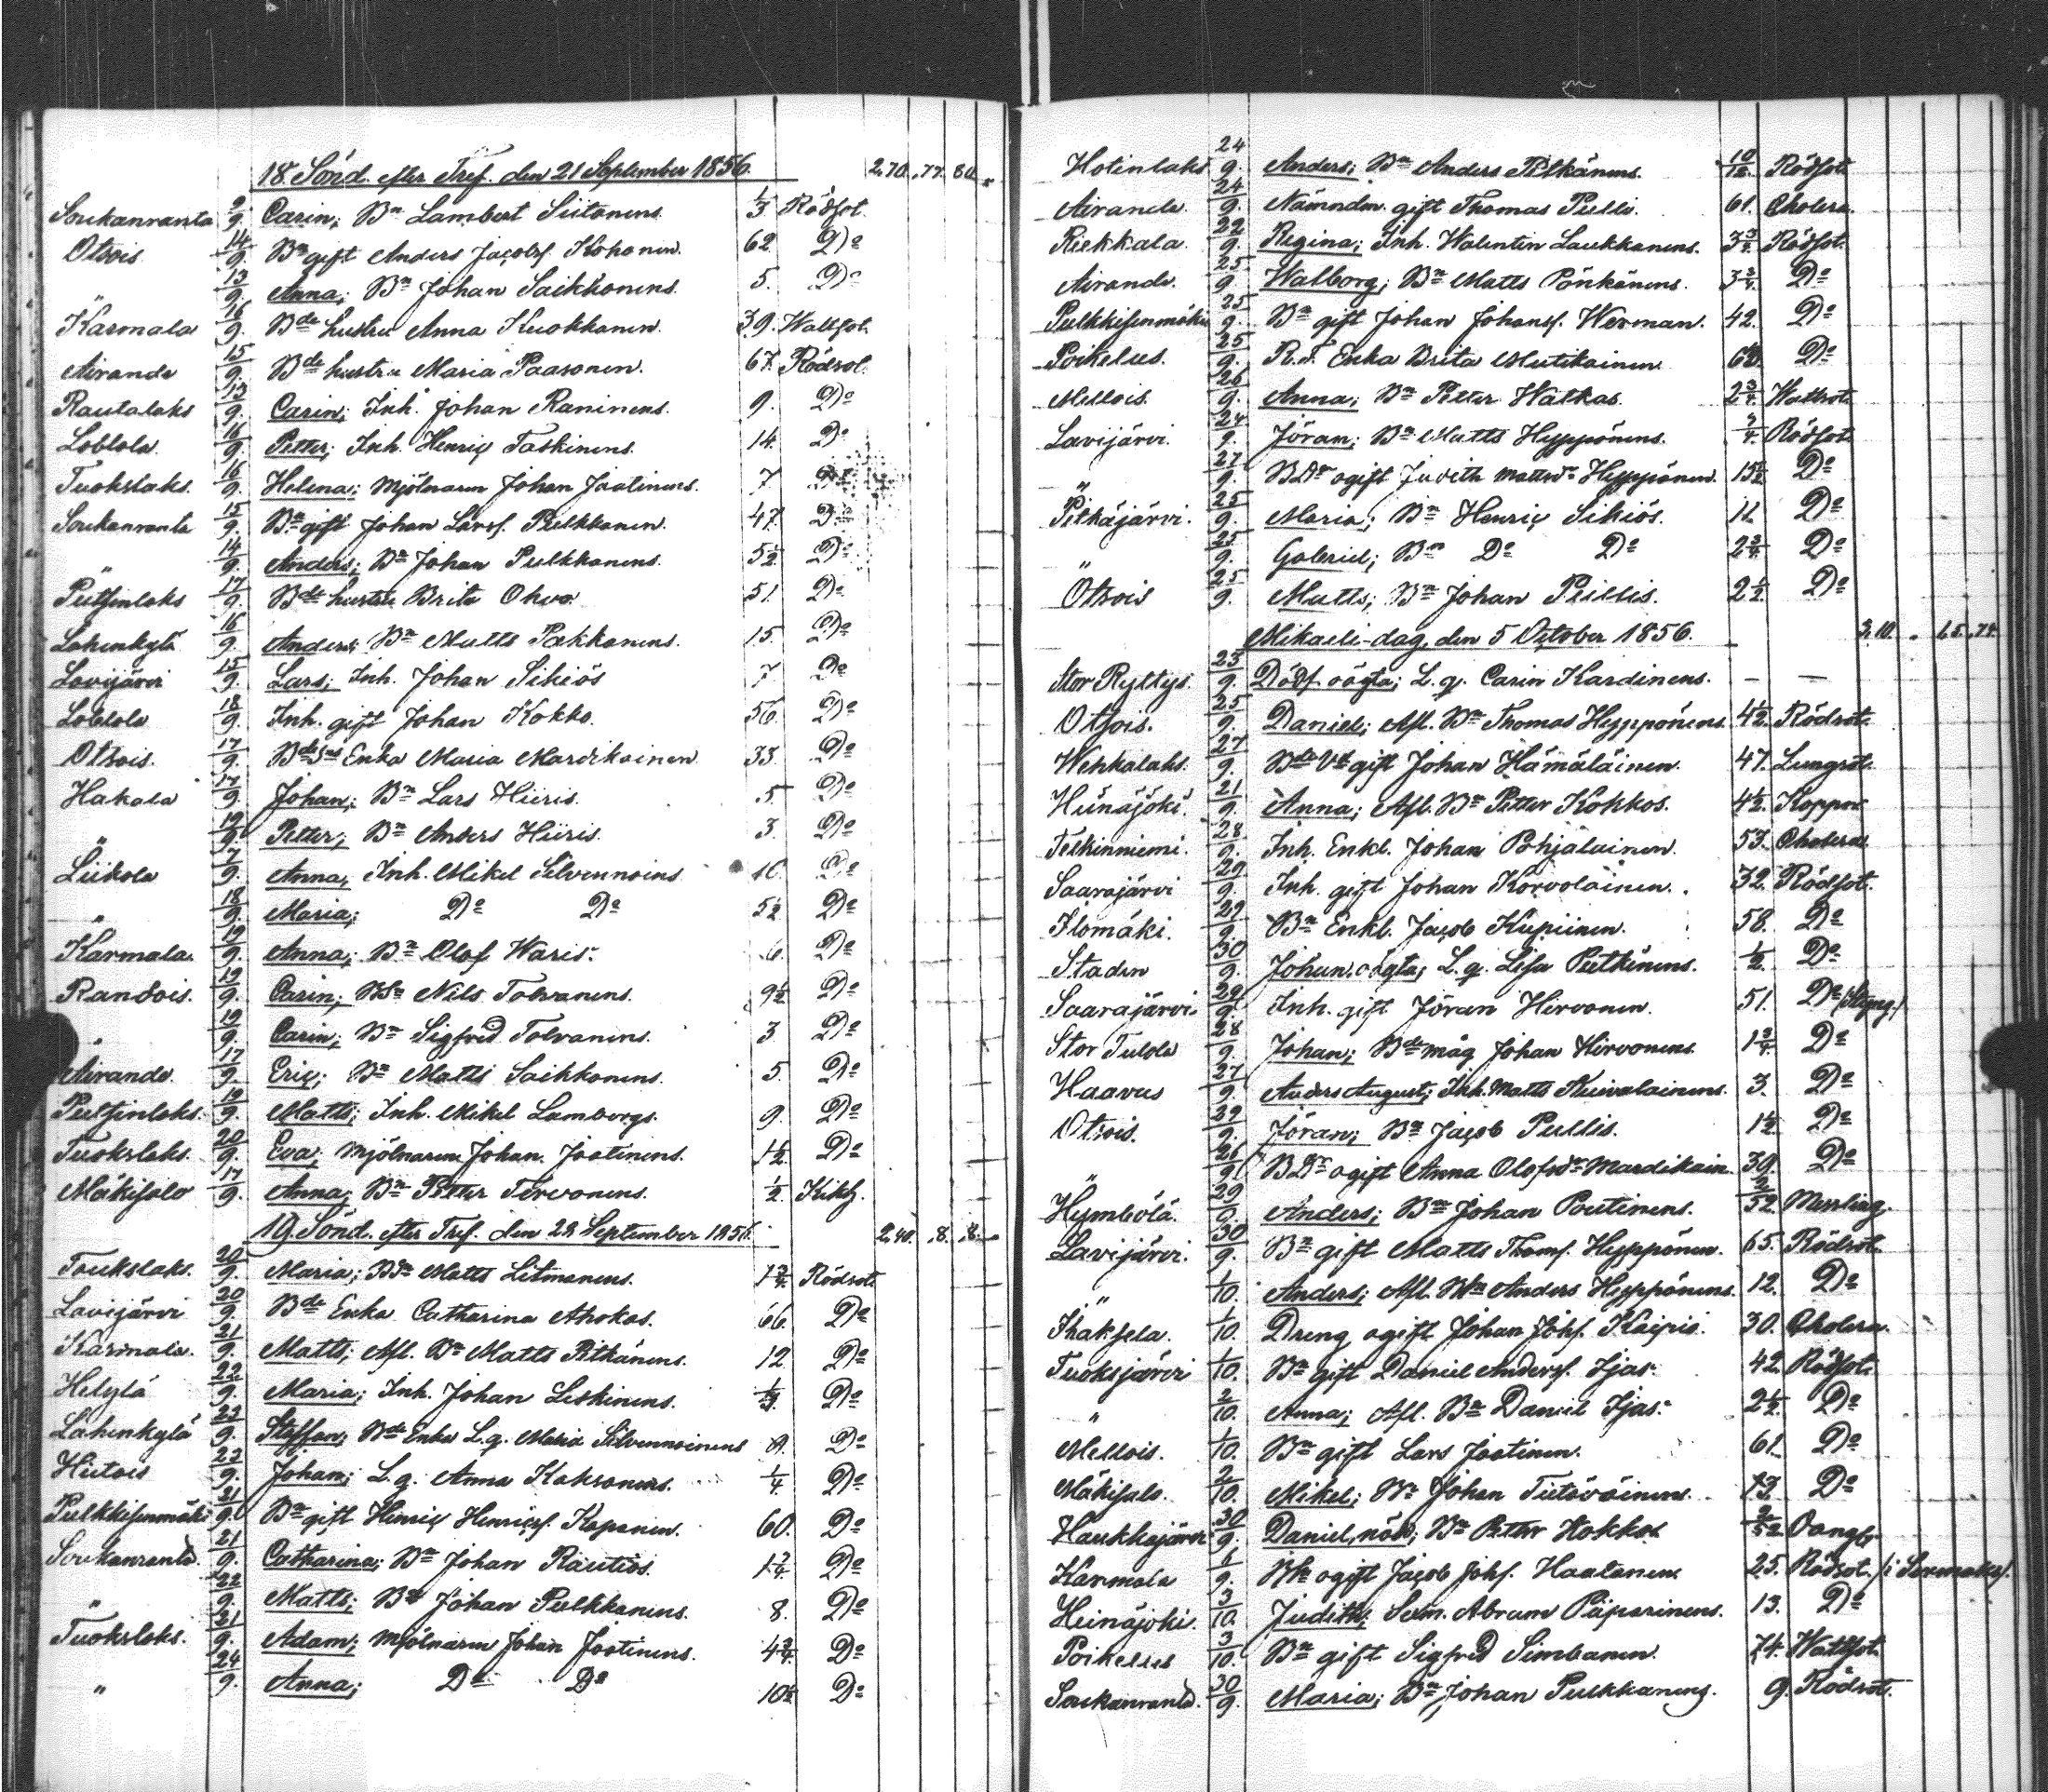 18. Sönd. efter Tref. den 21 September 1856. 2,70. 77. 80.
Soukanranta 9/9. Carin; Bn Lambert Siitonens. 1/3 Rödsot.
Otsois 14/9. Bn gift Anders Jacobs. Kohonen. 62. Do
" 13/9. Anna; Bn Johan Saikkonens. 5. Do
Karmala 16/9. Bde hustru Anna Kuokkanen. 39. Wattsot.
Airanda 15/9. Bde hustru Maria Paasonen. 67. Rödsot.
Rautalaks 13/9. Carin; Inh. Johan Raninens. 9. Do
Loblola 16/9. Petter; Inh. Henric Taskinens. 14. Do
Tuokslaks. 16/9. Helena; Mjölnaren Johan Jaatinens. 7 Do
Soukanranta 15/9. Bn gift Johan Larsf. Pulkkanen. 47. Do
" 14/9. Anders; Bn Johan Pulkkanens. 5 1/2 Do
Putsinlaks 17/9. Bde hustru Brita Ohvo 51. Do
Lahenkylä 16/9. Anders; Bn Matts Pakkanens. 15. Do
Lavijärvi 15/9. Lars; Inh. Johan Sikiös 7 Do
Loblola 18/9. Inh. gift Johan Kokko. 56. Do
Otsois. 17/9. Enka Maria Mardikainen. 33. Do
Hakala 17/9. Johan; Bn Lars Hiiris. 5. Do
" 19/9. Petter; Bn Anders Hiiris. 3. Do
Liikola 7/9. Anna; Inh. Mikel Silvennoins 10. Do
" 18/9. Maria; Do Do 5 1/2 Do
Karmala. 19/9. Anna; Bn Olof Waris. 6. Do
Randois. 19/9. Carin; Bn Nils Tolvanens. 9 1/2 Do
" 19/9. Carin; Bn Sigfred Tolvanens. 3 Do
Airanda. 17/9. Eric; Bn Matts Saikkonens. 5. Do
Putsinlaks. 19/9. Matts; Inh. Mikel Lambergs. 9. Do
Tuokslaks. 20/9. Eva; Mjölnaren Johan Jaatinens. 1 1/2. Do
Mäkisalo 17/9. Anna; Bn Petter Tervonens. 1/2 Kikh.
19. Sönd. efter Tref. den 28 September 1856. 2,40. 8. 8.
Toukslaks. 20/9. Maria; Bn Matts Litmanens. 1 3/4. Rödsot.
Lavijärvi 20/9. Bde Enka Catharina Ahokas. 66. Do
Karmala. 21/9. Matts; Afl. Bn Matts Pitkänens. 12. Do
Helylä 22/9. Maria; Inh. Johan Leskinens. Do
Lahenkylä 23/9. Staffan; Bde Enka L.q. Maria Silvennoinens 9. Do
Hiitois 23/9. Johan; L.q. Anna Kaksonens. 1/4 Do
Pulkkisenmäki 21/9. Bn gift Henric Henricsf. Kaponen. 60. Do
Soukanranta. 21/9. Catharina; Bn Johan Rautios. 1 3/4. Do
" 22/9. Matts; Bn Johan Pulkkanens. 8. Do
Tuokslaks. 21/9. Adam; Mjölnaren Johan Jaatinens. 4 3/4. Do
" 24/9. Anna; Do Do 10 1/2 Do
Hotinlaks 24/9. Anders; Bn Anders Pitkänens. 10/12. Rödsot.
Airanda. 24/9. Nämndm. gift Thomas Pulli. 61. Cholera.
Riekkala. 22/9. Regina; Inh. Walentin Laukkanens. 3 3/4. Rödsot.
Airanda. 25/9. Walborg; Bn Matts Pönkänens. 3 3/4. Do
Pulkkisenmäki 25/9. Bn gift Johan Johansf. Werman. 42. Do
Poikelus. 25/9. R.S. Enka Brita Mutikainen Do
Mellois. 26/9. Anna; Bn Petter Hatkas. 2 3/4. Wattsot.
Lavijärvi. 24/9. Jöran; Bn Matts Hyppönens. 3/4. Rödsot.
" 27/9. BDr ogift Judith Mattsdr Hyppönen. 15 1/2 Do
Pitkäjärvi. 25/9. Maria; Bn Henric Sikiös. 11. Do
" 25/9. Gabriel; Bn Do Do 2 3/4. Do
Otsois 25/9. Matts; Bn Johan Piillis. 2 1/2. Do
Mikaeli-dag, den 5 October 1856. 3,10. 15. 74
Stor Rytys. 23/9. Dödf. oägta; L.q. Carin Kardinens. — —
Otsois. 25/9. Daniel; Afl. Bn Thomas Hyppönens 4 1/2. Rödsot.
Wehkalaks. 27/9. gift Johan Hämäläinen. 47. Lungsot.
Hunajoki 21/9. Anna; Afl. Bn Petter Kokkos. 4 1/2. Koppor.
Telkinniemi. 28/9. Inh. Enkl. Johan Pohjalainen. 53. Cholera.
Saarajärvi 29/9. Inh. gift Johan Korvolainen. 32. Rödsot.
Ilomäki. 29/9. Bn Enkl. Jacob Kupiinen. 58. Do
Staden 30/9. Johan, oägta; L.q. Lisa Putkinens. 1/2. Do
Saarajärvi 29/9. Inh. gift Jöran Hirvonen. 51. Do
Stor Tulola 28/9. Johan; Bde måg Johan Hirvonens. 1 3/4. Do
Haavus 27/9. Anders August; Inh. Matts Kuivalainens. 3. Do
Otsois. 29/9. Jöran; Bn Jacob Pullis. 1 1/2. Do
" 26/9. BDr ogift Anna Olofsdr Mardikain. 39. Do
Hymbölä. 29/9. Anders; Bn Johan Poutinens. 2/52. Messling.
Lavijärvi. 30/9. Bn gift Matts Thomsf. Hyppönen. 65. Rödsot.
" 1/10. Anders; Afl. Bn Anders Hyppönens. 12. Do
Ihaksela. 1/10. Dreng, ogift Johan Johsf. Kaipio. 30. Cholera.
Tuoksjärvi 1/10. Bn gift Daniel Andersf. Ijas. 42. Rödsot.
" 2/10. Anna; Afl. Bn Daniel Ijas. 2 1/2. Do
Mellois. 1/10. Bn gift Lars Jaatinen. 61. Do
Mäkisalo. 2/10. Mikel; Bn Johan Tiitöväinens. 13. Do
Haukkajärvi 30/9. Daniel, nöd; Bn Petter Kokkos 2/52.
Karmala 6/9. ogift Jacob Johsf. Haatanen 25. Rödsot.
Heinäjoki. 3/10. Judith; Sexm. Abram Päparinens. 13. Do
Poikelus 3/10. Bn gift Sigfred Simbanen. 74. Wattsot.
Soukanranta. 30/9. Maria; Bn Johan Pulkkanens. 9. Rödsot.